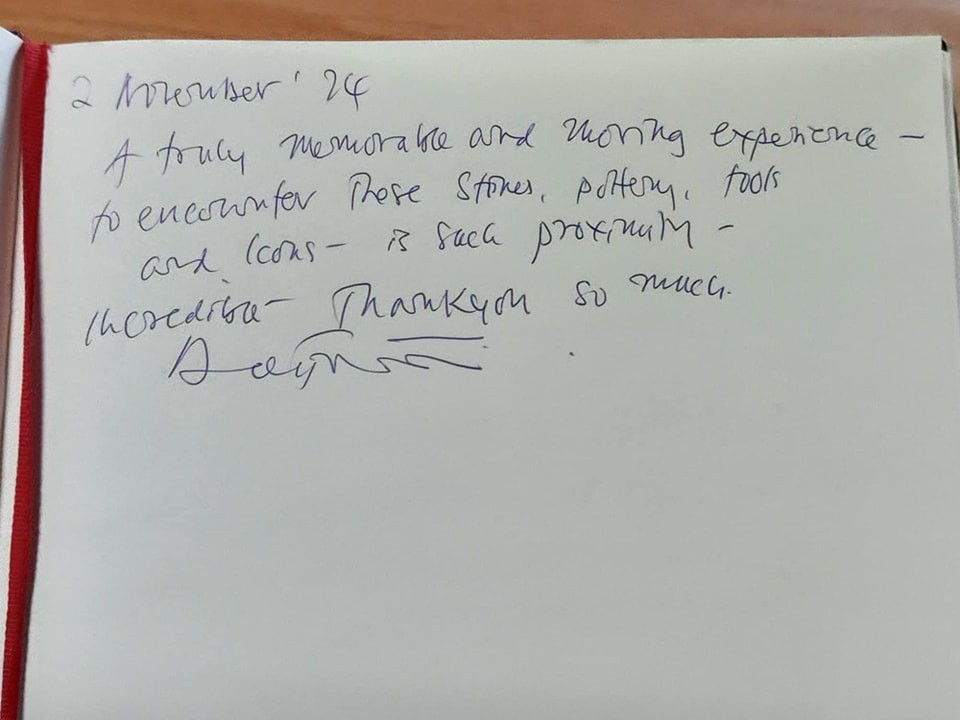 2 November '24
A truly memorable and moving experience –
to encounter these stones, pottery, tools
and icons – is such proximity –
incredible – Thank you so much.